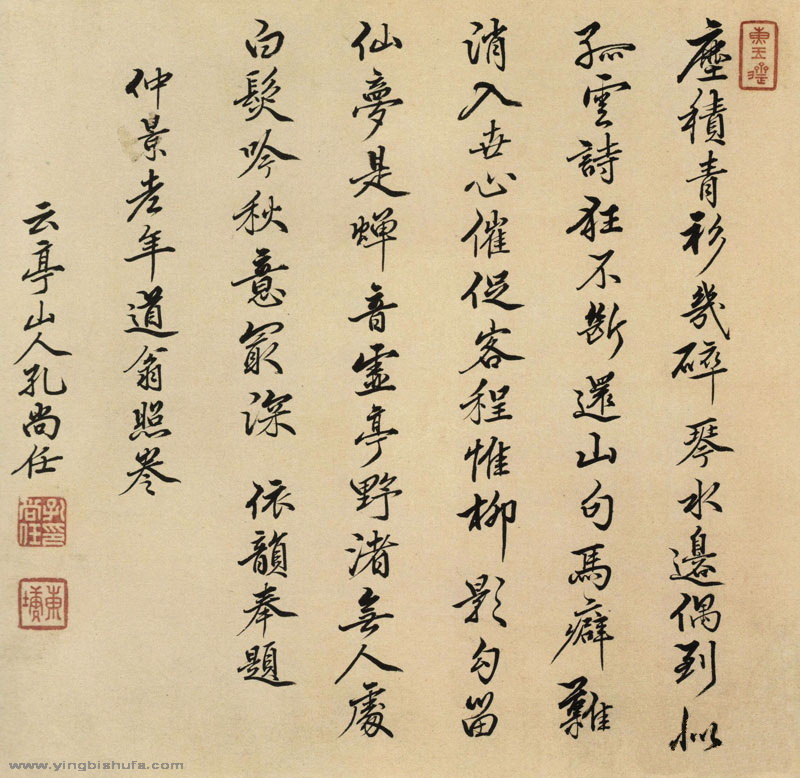 塵積青衫幾碎琴水邊偶到似
孤雲詩狂不斷還山句馬癖難
消入世心催促客程惟柳影勾留
仙夢是蟬音虛亭野渚無人處
白髮吟秋意最深 依韻奉題
仲景老年道翁照
云亭山人孔尚任
孔尚任印
東塘
www.yingbishufa.com